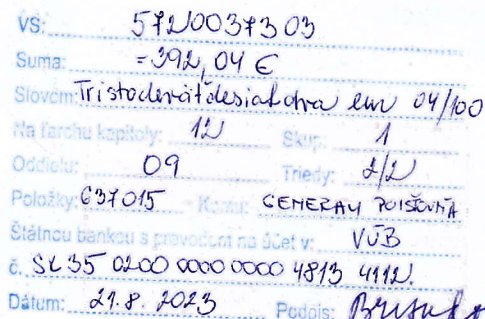 VS: 5720037303
Suma: =392,04 €
Slovom: Tristodeväťdesiatdva eur 04/100
Na ťarchu kapitoly: 12 Skup: 1
Oddielu: 09 Triedy: 2/2
Položky: 637015 Komu: GENERALI POISŤOVŇA
Štátnou bankou s prevodom na účet v: VÚB
č. SK 35 0200 0000 0000 4813 4112
Dátum: 21.8.2023 Podpis: